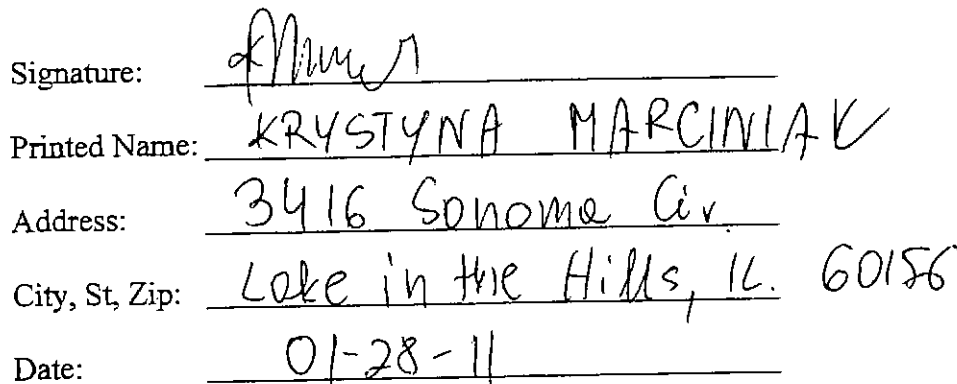 Signature:
Printed Name: KRYSTYNA MARCINIAK
Address: 3416 Sonoma Cir
City, St, Zip: Lake in the Hills, IL. 60156
Date: 01-28-11